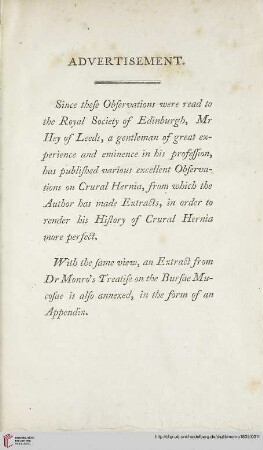 ADVERTISEMENT.
Since theſe Obſervations were read to
the Royal Society of Edinburgh, Mr
Hey of Leeds, a gentleman of great ex-
perience and eminence in his profeſſion,
has publiſhed various excellent Obſerva-
tions on Crural Hernia, from which the
Author has made Extracts, in order to
render his Hiſtory of Crural Hernia
more perfect.
With the ſame view, an Extract from
Dr Monro's Treatiſe on the Burſae Mu-
coſae is alſo annexed, in the form of an
Appendix.